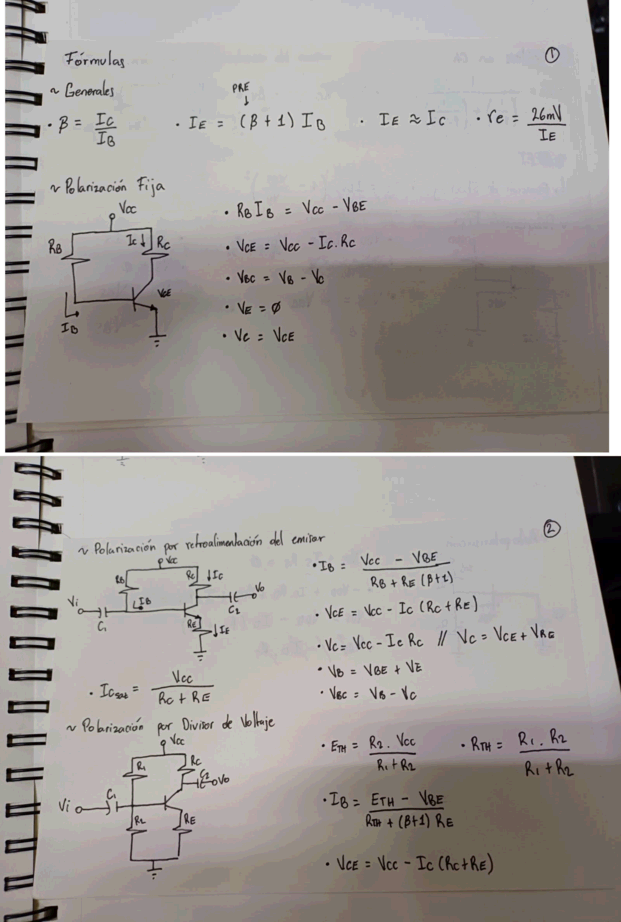 Fórmulas
①
~ Generales
PRE
↓
· β = IC / IB
· IE = (β + 1) IB
· IE ≈ IC
· re = 26mV / IE
~ Polarización Fija
VCC
RB
IC ↓
RC
VCE
IB
· RB IB = VCC - VBE
· VCE = VCC - IC. RC
· VBC = VB - VC
· VE = Ø
· VC = VCE
②
~ Polarización por retroalimentación del emisor
VCC
RB
RC
↓ IC
Vo
C2
Vi
C1
IB
RE
↓ IE
· IB = VCC - VBE / RB + RE (β+1)
· VCE = VCC - IC (RC + RE)
· VC = VCC - IC RC // VC = VCE + VRE
· VB = VBE + VE
· VBC = VB - VC
· ICsat = VCC / RC + RE
~ Polarización por Divisor de Voltaje
VCC
R1
RC
C2
Vo
Vi
C1
R2
RE
· ETH = R2 . VCC / R1 + R2
· RTH = R1 . R2 / R1 + R2
· IB = ETH - VBE / RTH + (β+1) RE
· VCE = VCC - IC (RC + RE)